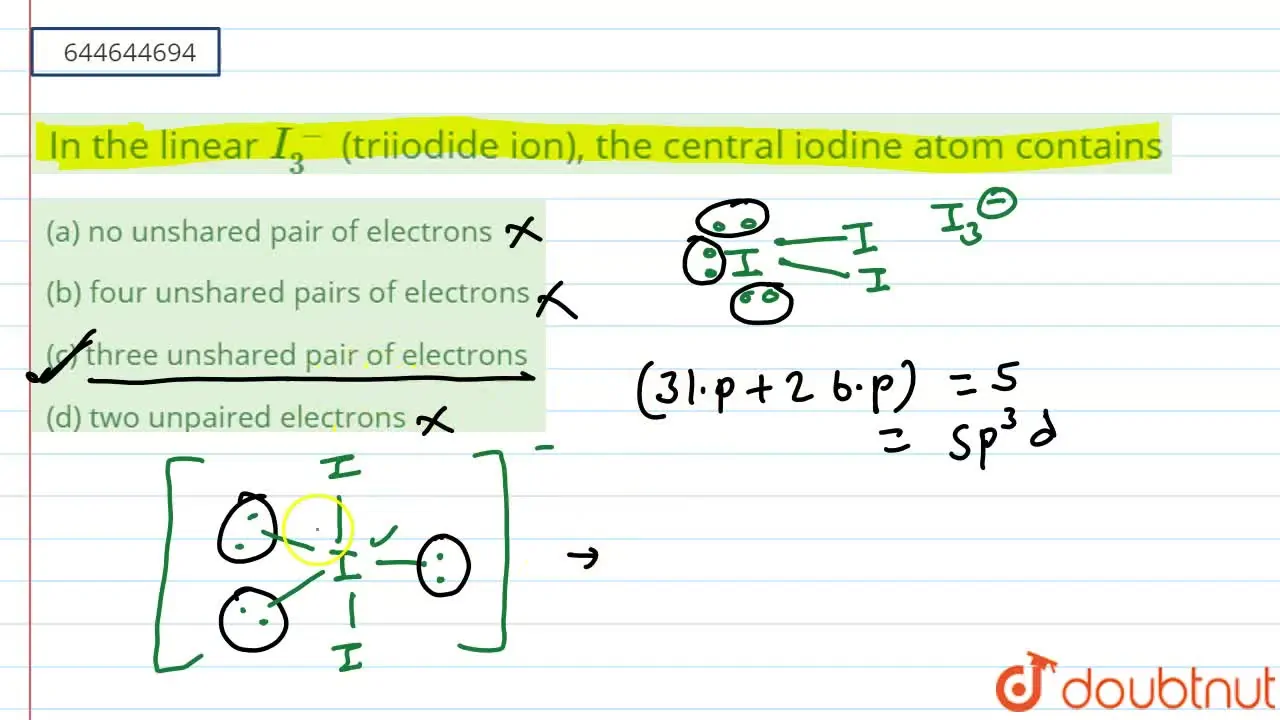 644644694
In the linear I₃⁻ (triiodide ion), the central iodine atom contains
(a) no unshared pair of electrons
(b) four unshared pairs of electrons
(c) three unshared pair of electrons
(d) two unpaired electrons
I₃⁻
I I
I
(3l.p + 2 b.p) = 5
= sp³d
I
I
I
doubtnut